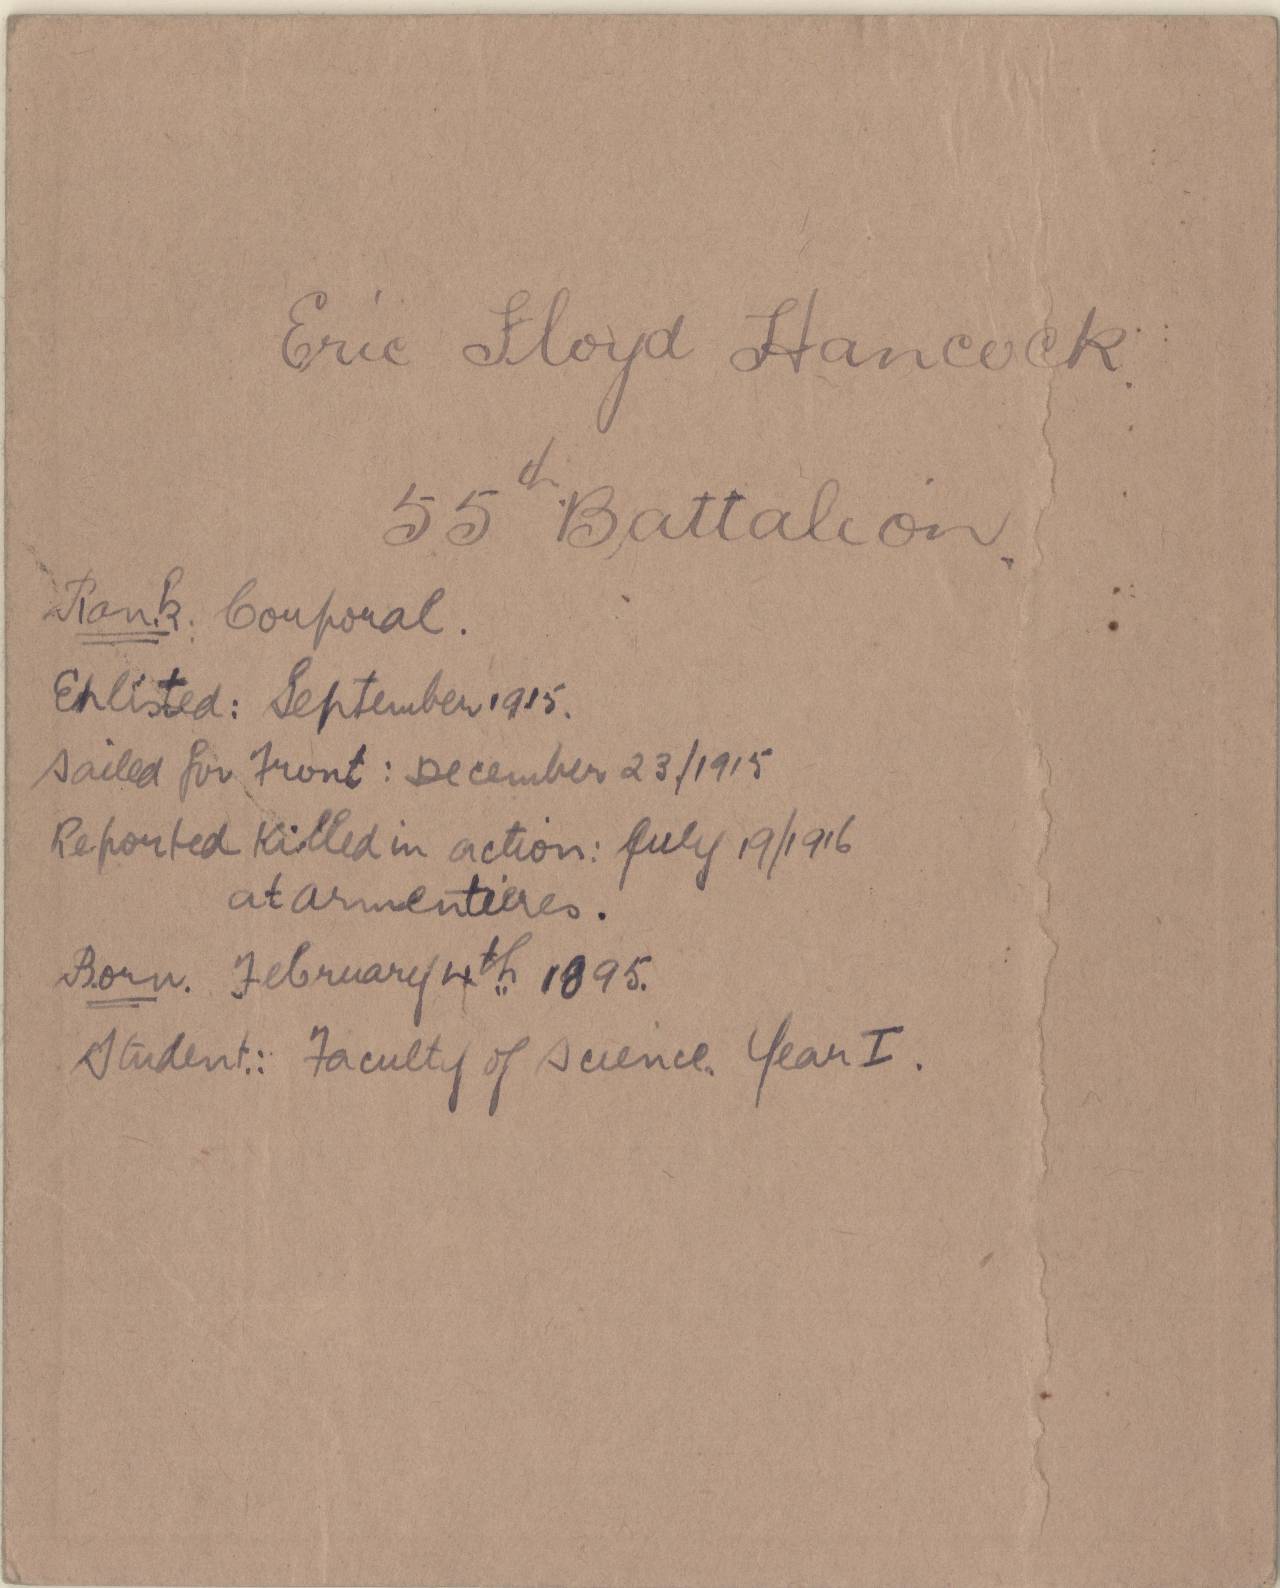 Eric Lloyd Hancock.
55th Battalion.
Rank: Corporal.
Enlisted: September 1915.
Sailed for Front: December 23/1915
Reported Killed in action: July 19/1916
at Armentieres.
Born. February 4th 1895.
Student: Faculty of Science. Year I.